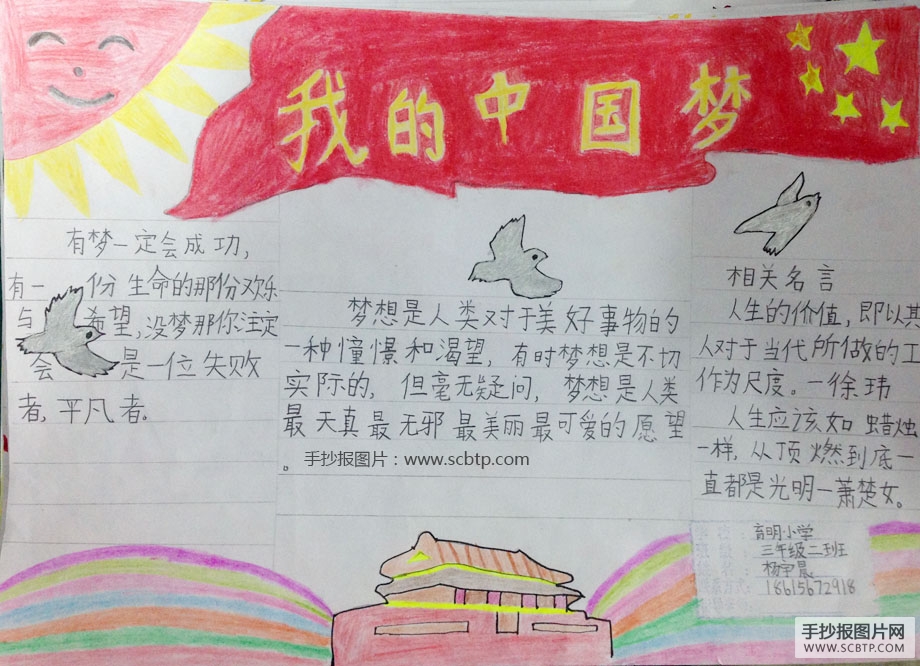 我的中国梦
有梦一定会成功,
有一 份生命的那份欢乐
与 希望,没梦那你注定
会 是一位失败
者,平凡者.
梦想是人类对于美好事物的
一种憧憬和渴望,有时梦想是不切
实际的,但毫无疑问,梦想是人类
最天真最无邪最美丽最可爱的愿望
。
手抄报图片:www.scbtp.com
相关名言
人生的价值,即以其
人对于当代所做的工
作为尺度。—徐玮
人生应该如蜡烛
一样,从顶燃到底一
直都是光明—萧楚女。
育明小学
三年级二班
杨宇晨
18615672918
手抄报图片网
WWW.SCBTP.COM